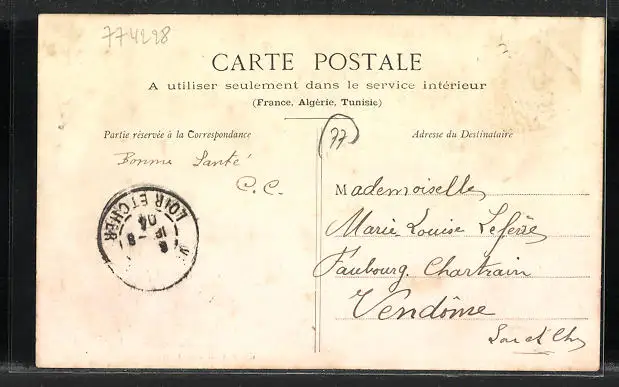 774228
CARTE POSTALE
A utiliser seulement dans le service intérieur
(France, Algérie, Tunisie)
77
Partie réservée à la Correspondance
Adresse du Destinataire
Bonne Santé
C. C.
Mademoiselle
Marie-Louise
Faubourg Chartrain
Vendôme
Loir et Cher
LOIR ET CHER
04